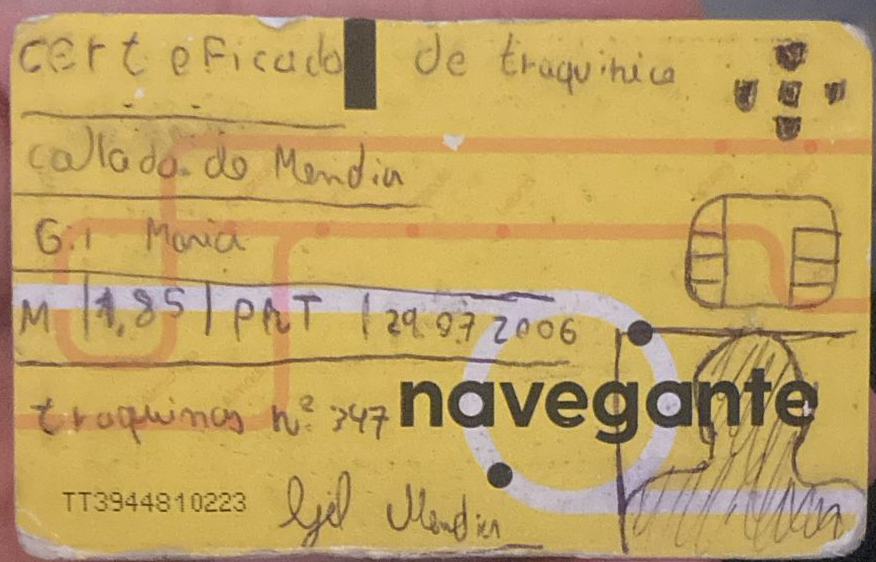 certeficado de traquinice
callado de Mendia
Gil Maria
M | 1,85 | PRT | 29 07 2006
traquinas nº 347
navegante
TT3944810223
Gil Mendia